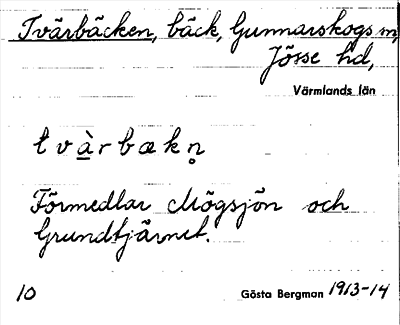 Tvärbäcken, bäck, Gunnarskogs sn,
Jösse hd,
Värmlands län
t v à r b æ k n̥
Förmedlar Mögsjön och
Grundtjärnet.
10 Gösta Bergman 1913-14